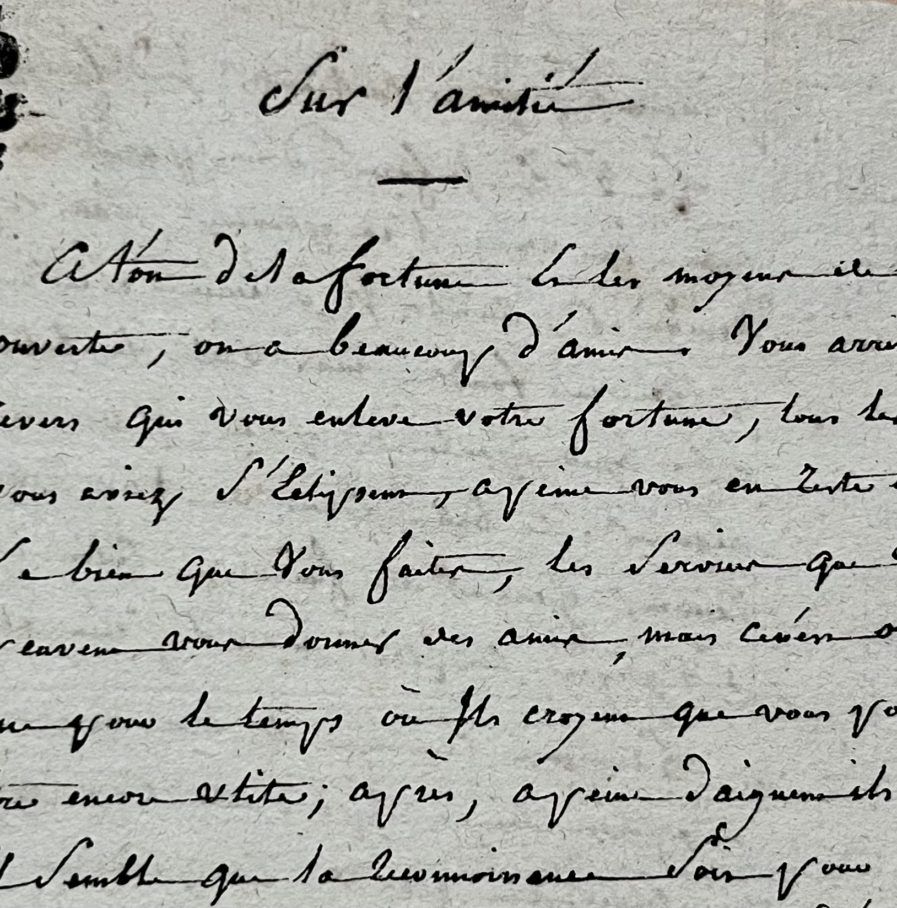 Sur l'amitié
A t'on de la fortune Et les moyens de
ouverte, on a beaucoup d'amis. Vous arri
evers qui vous enleve votre fortune, tous les
vous aviez S'Eclipsent, apeine vous en reste
Le bien que Vous faites, les Services que
peuvent vous donner des amis, mais
que pour le temps où Ils croyent que vous po
tre encore utile; après, apeine daignent ils
l Semble que la reconnoissance Soit pour